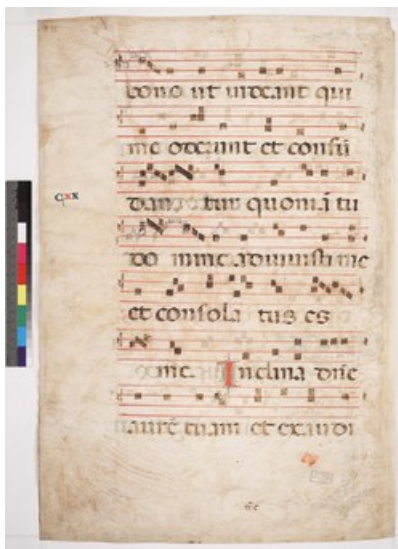 bono ut videant qui
me oderunt et confū
cxx
dan tur quoniā tu
do mine adiuvisti me
et consola tus es
me. Inclina dñe
aurē tuam et exaudi
me